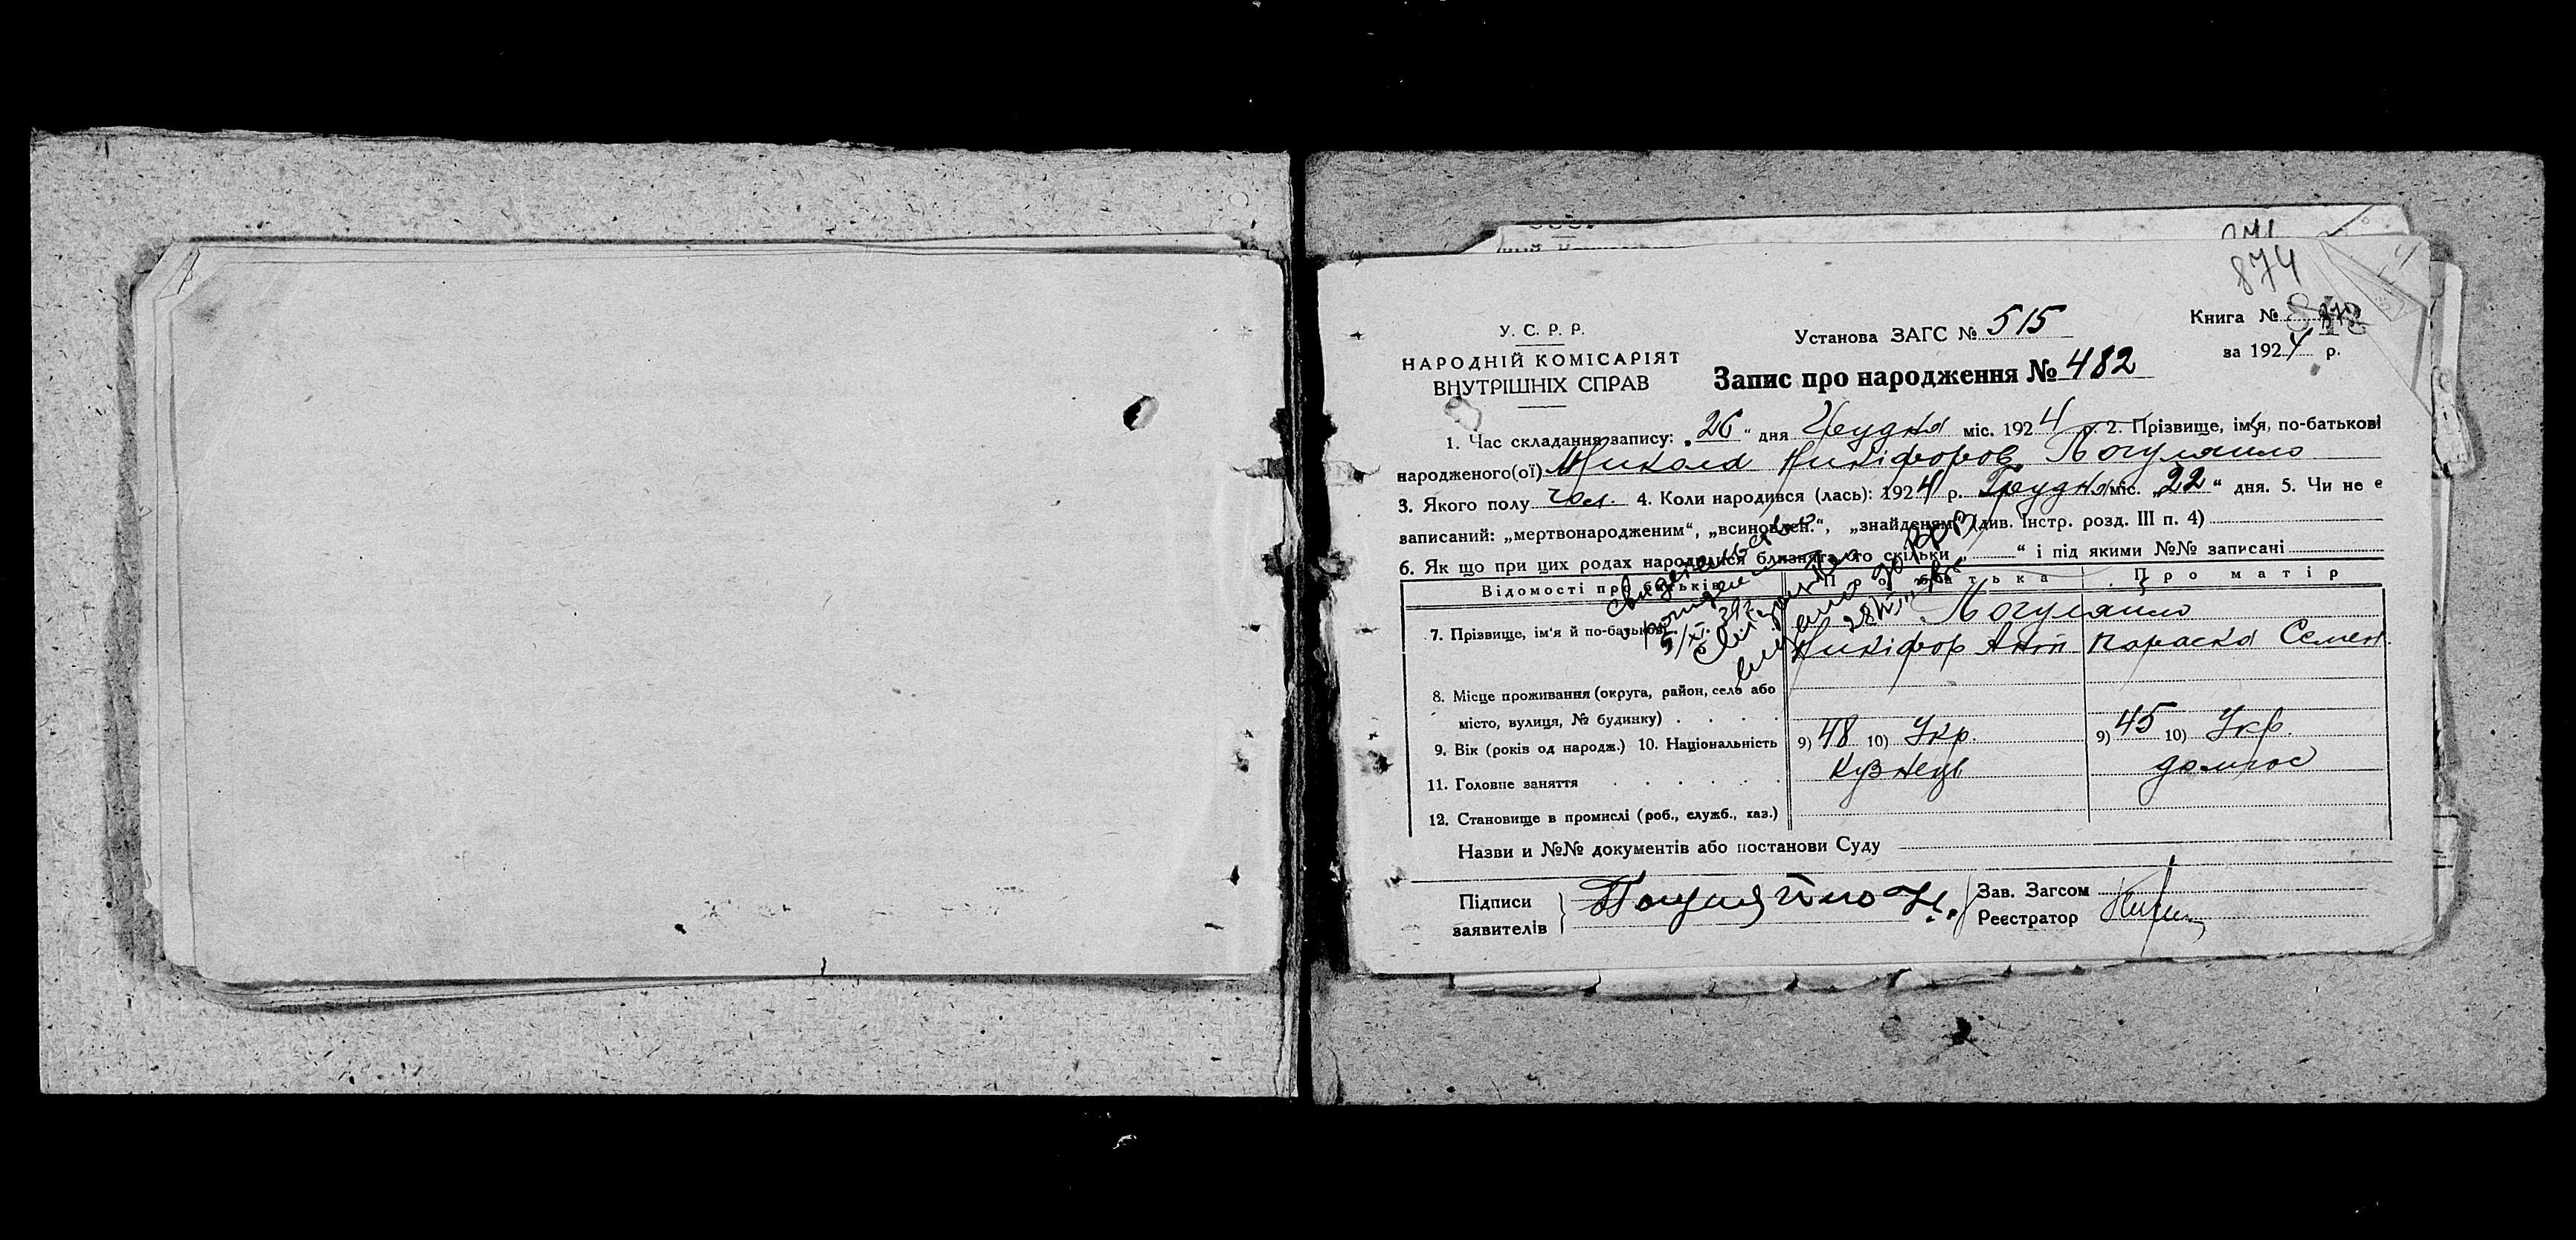 874
У. С. Р. Р.
НАРОДНІЙ КОМІСАРІЯТ
ВНУТРІШНІХ СПРАВ
Установа ЗАГС № 515
Запис про народження № 482
Книга №
за 1924 р.
1. Час складання запису: „26“ дня Грудня міс. 1924 р. 2. Прізвище, ім'я, по-батькові
народженого(ої) Микола Никіфоров Погуляйло
3. Якого полу чол. 4. Коли народився (лась): 1924 р. Грудня міс. „22“ дня. 5. Чи не є
записаний: „мертвонародженим“, „всиновлен.“, „знайденям“ (див. Інстр. розд. III п. 4)
6. Як що при цих родах народилися близнята, то скільки „ “ і під якими №№ записані
Відомості про батьків Про батька Про матір
7. Прізвище, ім'я й по-батькові Погуляйло
Никіфор Антіп Параска Семен.
8. Місце проживання (округа, район, село або
місто, вулиця, № будинку)
9. Вік (років од народж.) 10. Національність 9) 48 10) Укр. 9) 45 10) Укр.
11. Головне заняття Кузнець домгос
12. Становище в промислі (роб., служб., хаз.)
Назви и №№ документів або постанови Суду
Підписи
заявителів
Погуляйло Н.
Зав. Загсом
Реєстратор